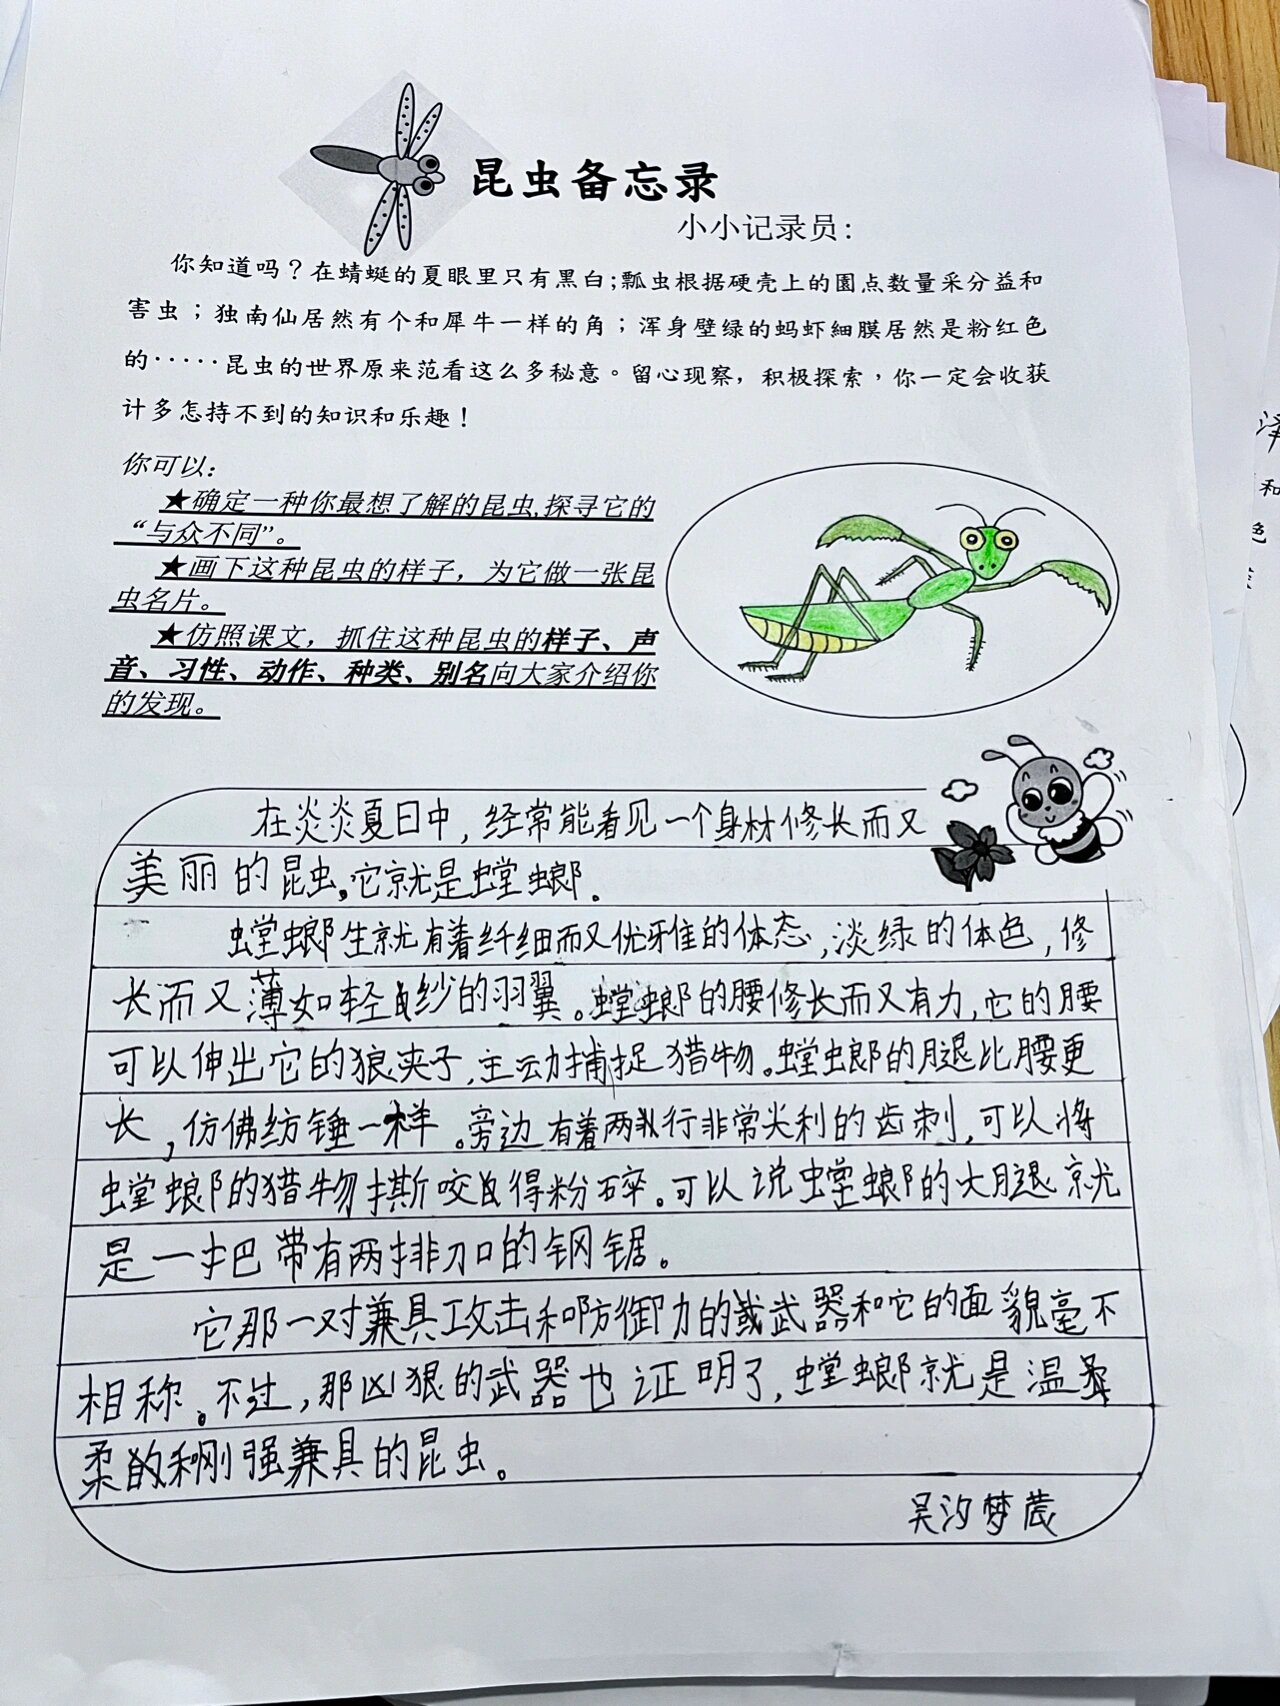 昆虫备忘录
小小记录员:
你知道吗？在蜻蜓的夏眼里只有黑白;瓢虫根据硬壳上的圆点数量采分益和
害虫；独南仙居然有个和犀牛一样的角；浑身壁绿的蚂虾細膜居然是粉红色
的·····昆虫的世界原来范看这么多秘意。留心现察，积极探索，你一定会收获
计多怎持不到的知识和乐趣！
你可以:
★确定一种你最想了解的昆虫,探寻它的
“与众不同”。
★画下这种昆虫的样子，为它做一张昆
虫名片。
★仿照课文，抓住这种昆虫的样子、声
音、习性、动作、种类、别名向大家介绍你
的发现。
在炎炎夏日中，经常能看见一个身材修长而又
美丽的昆虫,它就是螳螂.
螳螂生就有着纤细而又优雅的体态,淡绿的体色,修
长而又薄如轻纱的羽翼。螳螂的腰修长而又有力,它的腰
可以伸出它的狼夹子,主动捕捉猎物。螳螂的腿比腰更
长,仿佛纺锤一样。旁边有着两行非常尖利的齿刺,可以将
螳螂的猎物撕咬得粉碎。可以说螳螂的大腿就
是一把带有两排刀口的钢锯。
它那一对兼具攻击和防御力的武器和它的面貌毫不
相称。不过,那凶狠的武器也证明了,螳螂就是温
柔的和刚强兼具的昆虫。
吴汐梦
泽
和
色